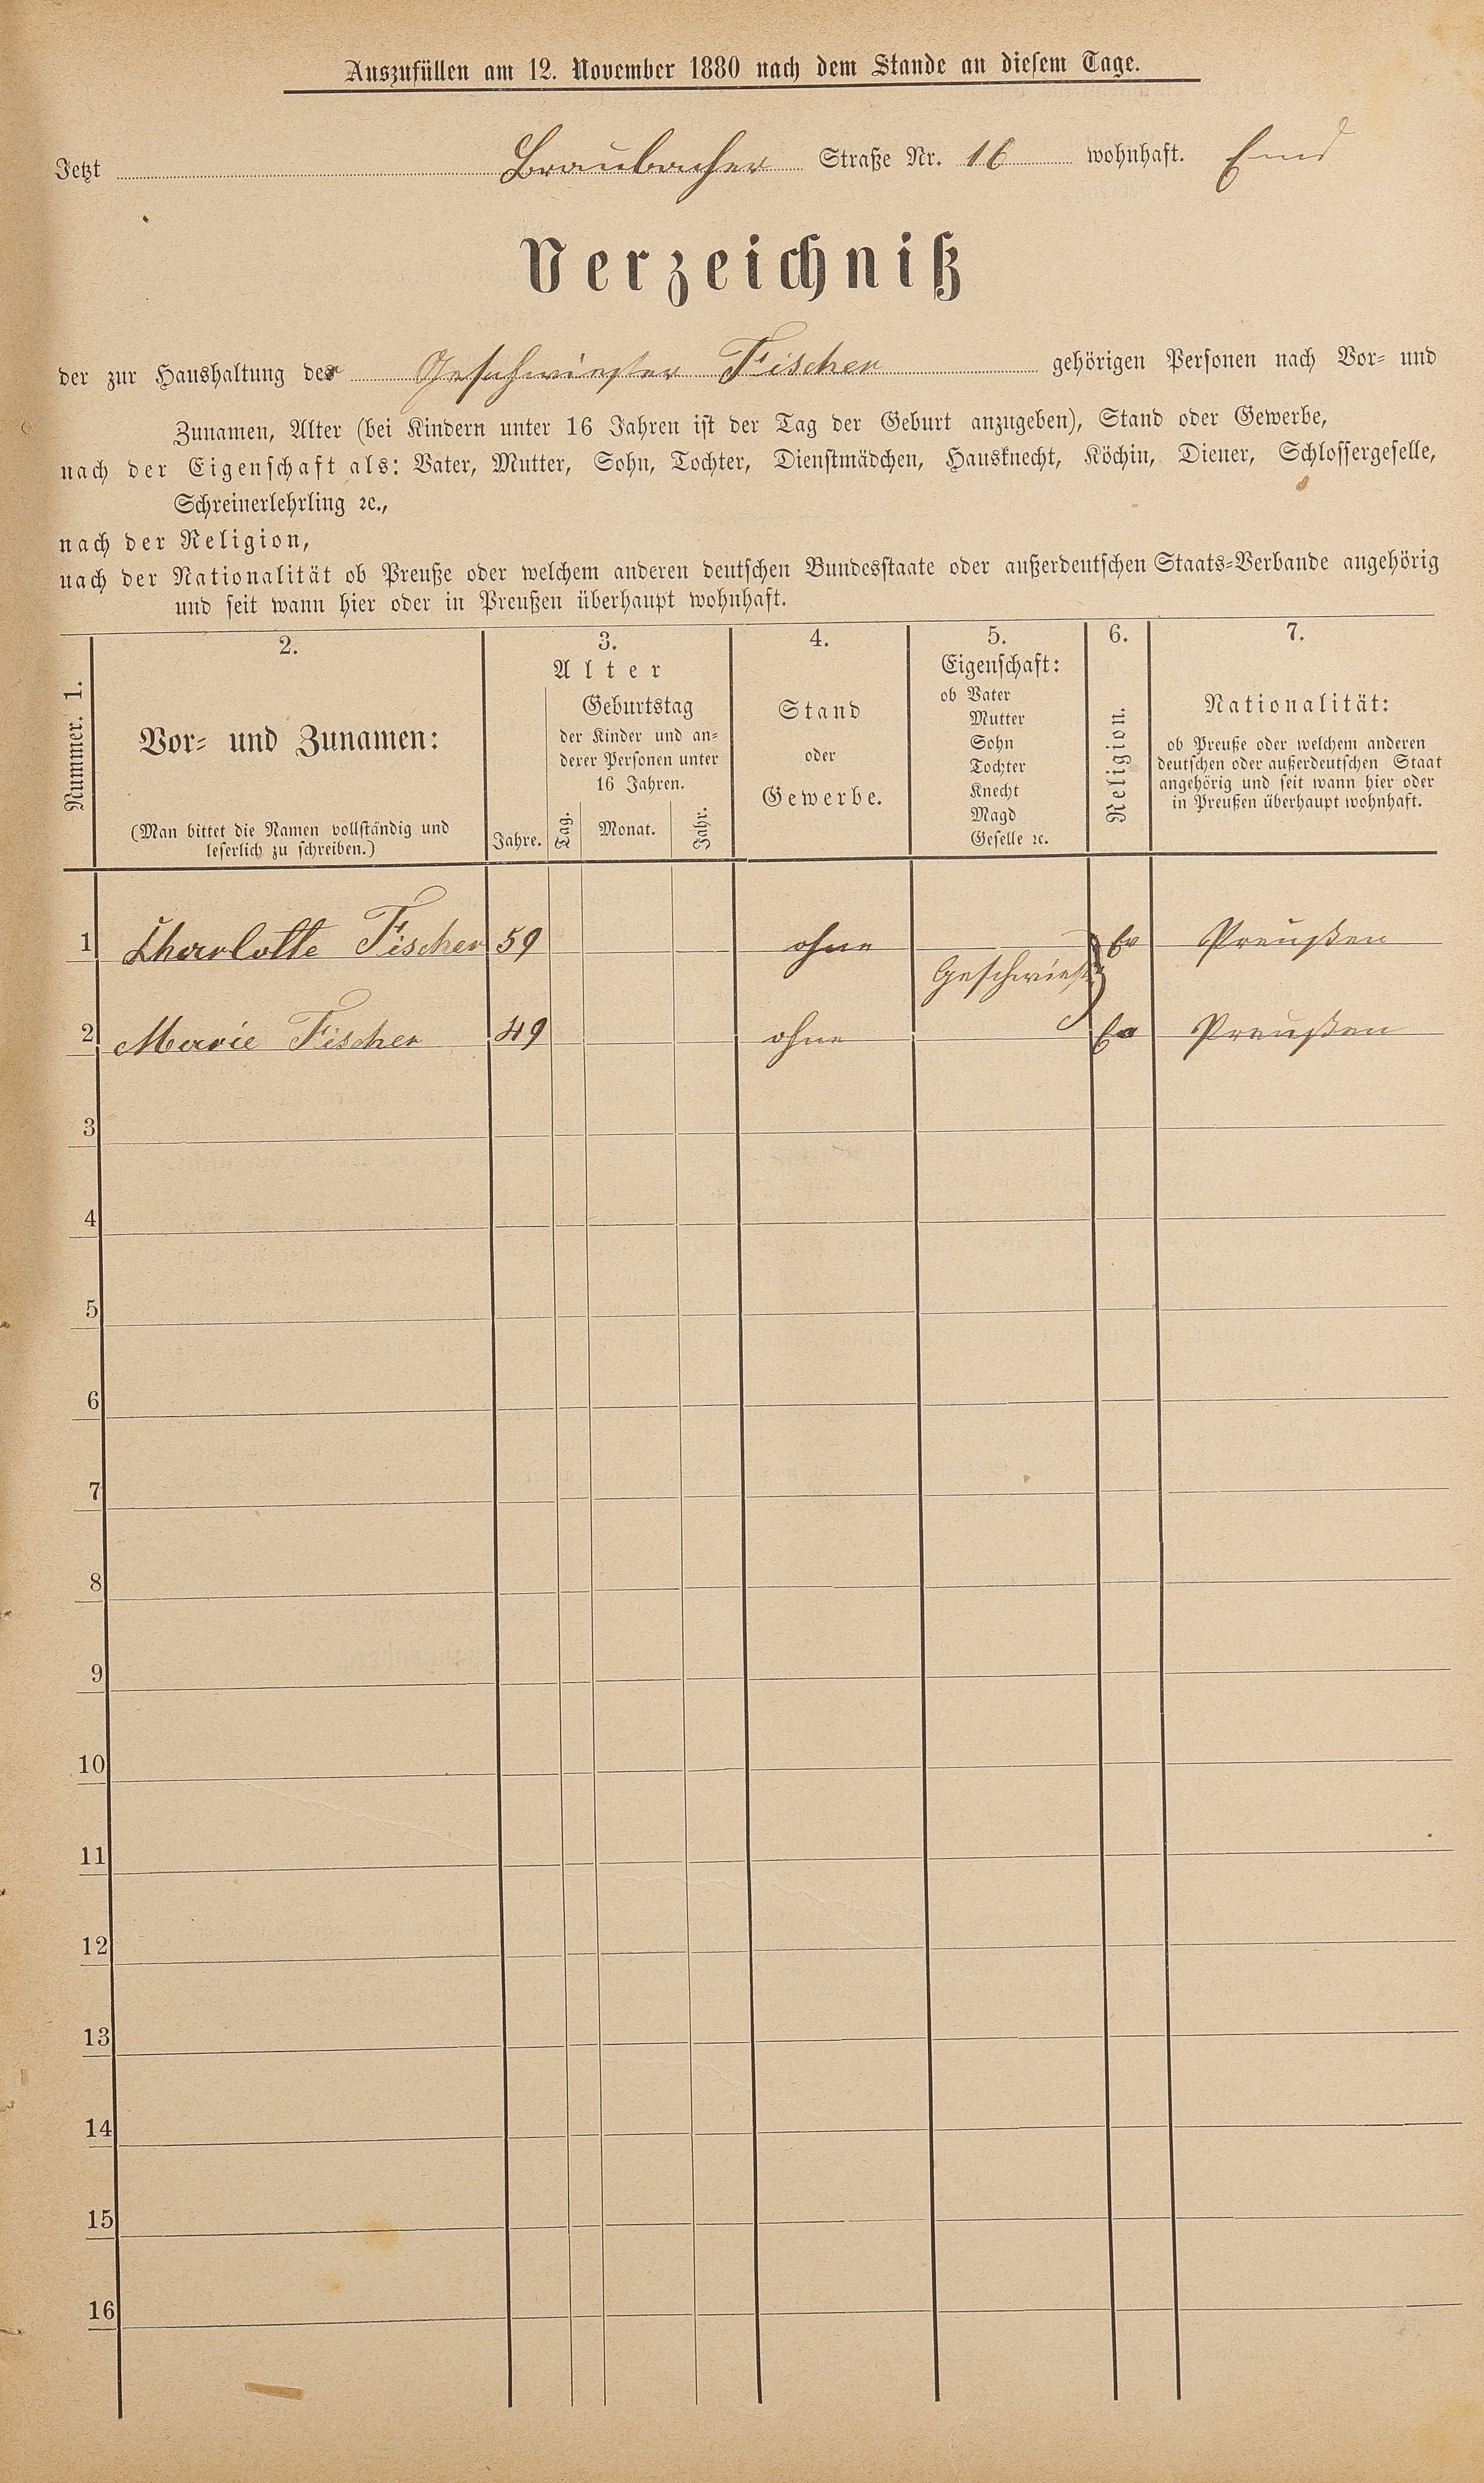 Auszufüllen am 12. November 1880 nach dem Stande an diesem Tage.
Jetzt Braubacher Straße Nr. 16 wohnhaft. Ems
Verzeichniß
der zur Haushaltung der Geschwister Fischer gehörigen Personen nach Vor- und
Zunamen, Alter (bei Kindern unter 16 Jahren ist der Tag der Geburt anzugeben), Stand oder Gewerbe,
nach der Eigenschaft als: Vater, Mutter, Sohn, Tochter, Dienstmädchen, Hausknecht, Köchin, Diener, Schlossergeselle,
Schreinerlehrling ꝛc.,
nach der Religion,
nach der Nationalität ob Preuße oder welchem anderen deutschen Bundesstaate oder außerdeutschen Staats-Verbande angehörig
und seit wann hier oder in Preußen überhaupt wohnhaft.
Nummer. 1.
2.
Vor- und Zunamen:
(Man bittet die Namen vollständig und
leserlich zu schreiben.)
3.
Alter
Jahre.
Geburtstag
der Kinder und an-
derer Personen unter
16 Jahren.
Tag.
Monat.
Jahr.
4.
Stand
oder
Gewerbe.
5.
Eigenschaft:
ob Vater
Mutter
Sohn
Tochter
Knecht
Magd
Geselle ꝛc.
6.
Religion.
7.
Nationalität:
ob Preuße oder welchem anderen
deutschen oder außerdeutschen Staat
angehörig und seit wann hier oder
in Preußen überhaupt wohnhaft.
1 Charlotte Fischer 59 ohne Ev Preußen
Geschwist
2 Marie Fischer 49 ohne Ev Preußen
3
4
5
6
7
8
9
10
11
12
13
14
15
16